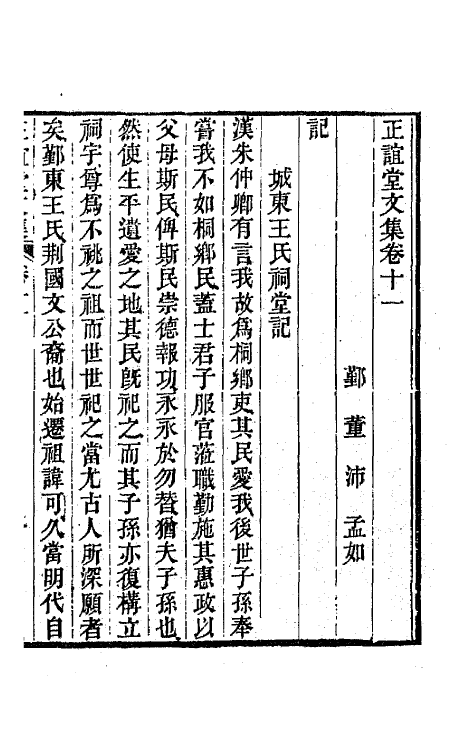 正誼堂文集卷十一
鄞董沛孟如
記
城東王氏祠堂記
漢朱仲卿有言我故為桐鄉吏其民愛我後世子孫奉
嘗我不如桐鄉民蓋士君子服官蒞職勤施其惠政以
父母斯民俾斯民崇德報功永永於勿替猶夫子孫也
然使生平遺愛之地其民旣祀之而其子孫亦復構立
祠宇尊為不祧之祖而世世祀之當尤古人所深願者
矣鄞東王氏荆國文公裔也始遷祖諱可久當明代自